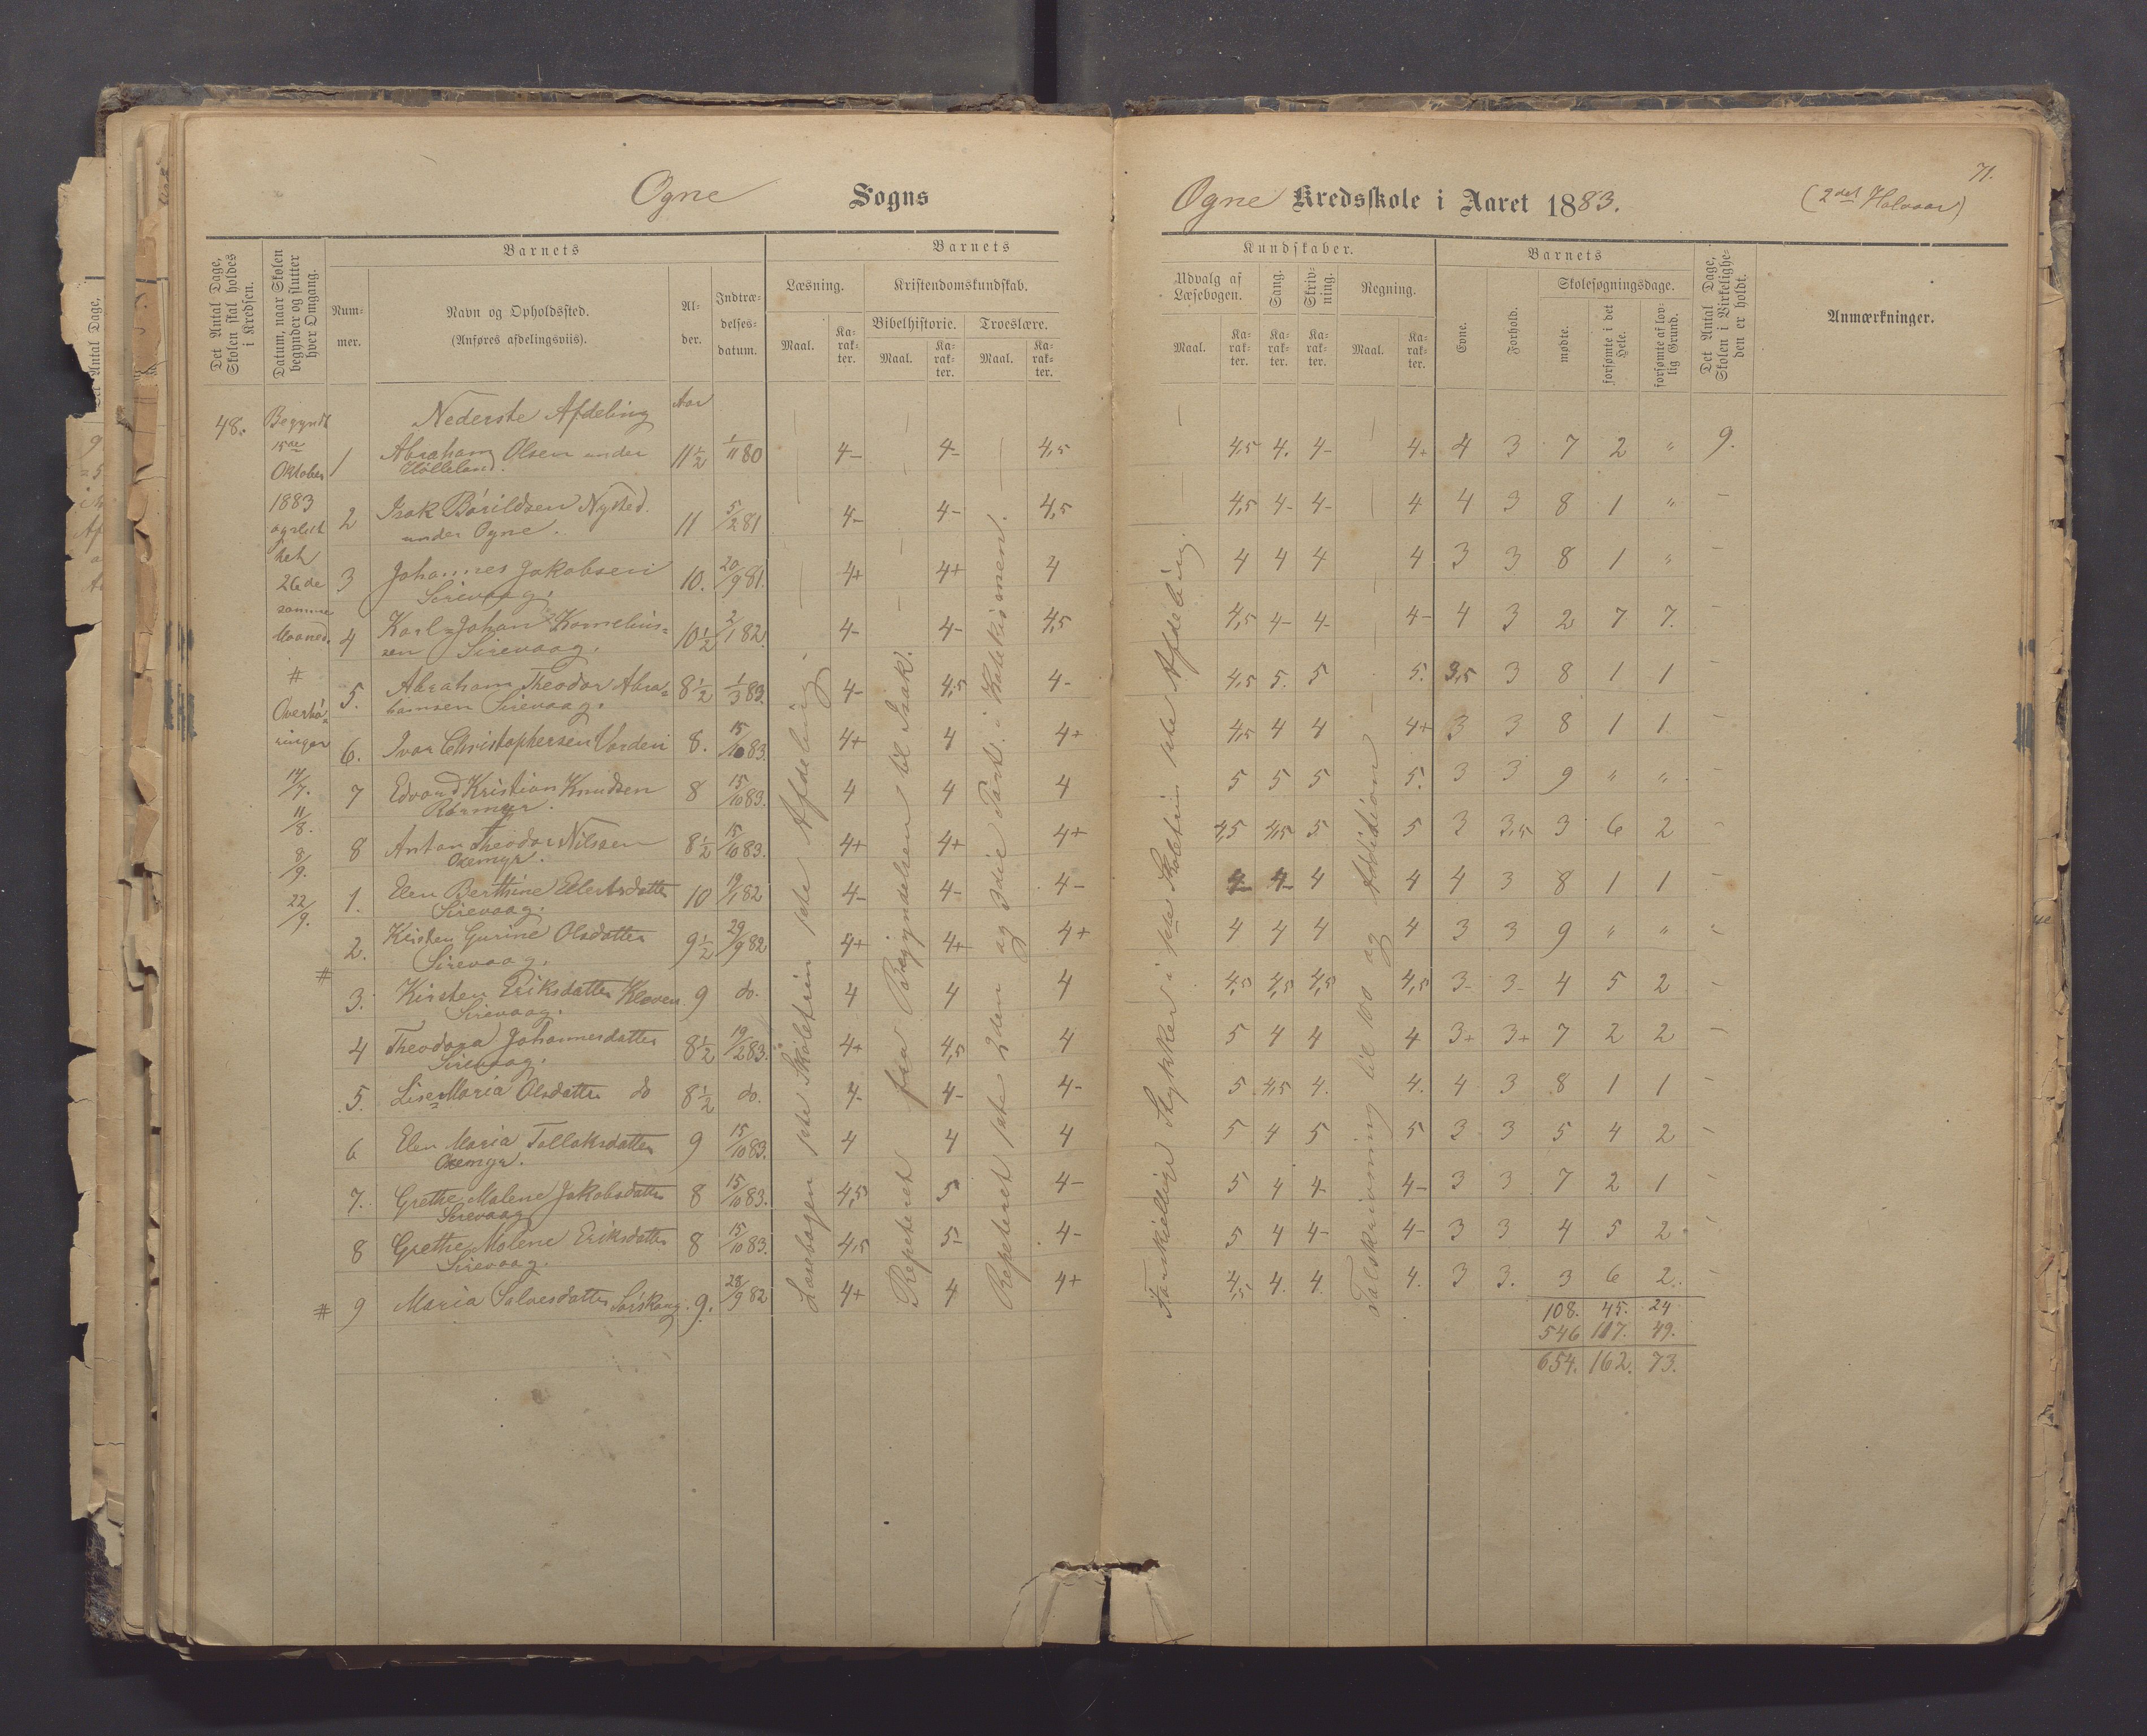 71.
Ogne Sogns Ogne Kredsskole i Aaret 1883. (2det Halvaar)
Det Antal Dage, Skolen skal holdes i Kredsen.
Datum, naar Skolen begynder og slutter hver Omgang.
Barnets
Num-
mer.
Navn og Opholdssted.
(Anføres afdelingsviis).
Al-
der.
Indtræ-
delses-
datum.
Barnets
Læsning.
Kristendomskundskab.
Bibelhistorie. Troeslære.
Maal. Ka-rak-ter. Maal. Ka-rak-ter. Maal. Ka-rak-ter.
Kundskaber.
Udvalg af Læsebogen. Sang. Skriv-ning. Regning.
Maal. Ka-rak-ter. Ka-rak-ter. Ka-rak-ter. Maal. Ka-rak-ter.
Barnets
Evne. Forhold. Skolesøgningsdage.
mødte. forsømte i det Hele. forsømte af lov-lig Grund.
Det Antal Dage, Skolen i Virkelighe-den er holdt.
Anmærkninger.
48.
Begyndt
15de
Oktober
1883
26de
samme
Maaned.
#
Overhø-
ringer
14/7.
11/8.
8/9.
22/9.
Nederste Afdeling Aar
1 Abraham Olsen under 11½ 1/11 80 4- 4- 4,5 4,5 4. 4- 4+ 4 3 7 2 " 9.
Hølleland.
2 Isak Bórildsen Nysted. 11 5/2 81 4- 4- 4,5 4,5 4- 4- 4 4 3 8 1 " -
under Ogne.
3 Johannes Jakobsen 10. 20/9 81. 4+ 4+ 4 4 4 4 4 3 3 8 1 " -
Sirevaag.
4 Karl Johan Kornelius- 10½ 2/1 82. 4- 4- 4,5 4,5 4- 4- 4- 4 3 2 7 7. -
sen Sirevaag.
5. Abraham Theodor Abra- 8½ 1/3 83. 4- 4,5 4- 4,5 5. 5 5. 3,5 3 8 1 1 -
hamsen Sirevaag.
6. Ivar Christophersen Varden 8. 15/10 83. 4+ 4 4+ 4,5 4 4 4+ 3 3 8 1 1 -
7 Edvard Kristian Knudsen 8 15/10 83. 4 4 4 5 5 5 5. 3 3 9 " " -
8 Anton Theodor Nilsen 8½ 15/10 83. 4+ 4+ 4+ 4,5 4,5 5 5 3 3,5 3 6 2 -
Oxemyr.
1. Elen Berthine Eilertsdatter 10 19/1 82 4- 4- 4- 4- 4- 4 4 4 3 8 1 1 -
Sirevaag.
2. Kirsten Gurine Olsdatter 9½ 29/9 82 4+ 4+ 4+ 4 4 4 4 3 3 9 " " "
Sirevaag.
# 3. Kirsten Eriksdatter Kleven 9 do. 4 4 4 4,5 4,5 4,5 4,5 3- 3- 4 5 2
Sirevaag.
4 Theodora Johannesdatter 8½ 19/2 83. 4+ 4,5 4 5 4 4 4 3+ 3+ 7 2 2
Sirevaag.
5. Lise Maria Olsdatter do 8½ do. 4- 4- 4- 5 4,5 4. 4. 4 3 8 1 1
6 Elen Maria Tollaksdatter 9 15/10 83. 4 4 4 5 4 5 5 3 3 5 4 2
Oxemyr.
7. Grethe Malene Jakobsdatter 8 15/10 83. 4,5 5 4- 5 4 4- 4- 3 3 7 2 1
Sirevaag
8 Grethe Malene Eriksdatter 8 15/10 83. 4,5 5- 4- 5 4 4- 4- 3 3 4 5 2
Sirevaag.
# 9 Maria Salvesdatter 9. 28/9 82 4+ 4 4+ 4,5 4. 4. 4. 3 3. 3 6 2.
108. 45. 24
546 117. 49.
654. 162. 73.
Læsebogen 1ste Skoletrin 1ste Afdeling.
Repeteret fra Begyndelsen til Isak.
Repeteret 1ste 2den og 3die Part i Katekismen.
Forskjellige Stykker i 1ste Skoletrin 1ste Afdeling.
Talskrivning til 100 og Addition